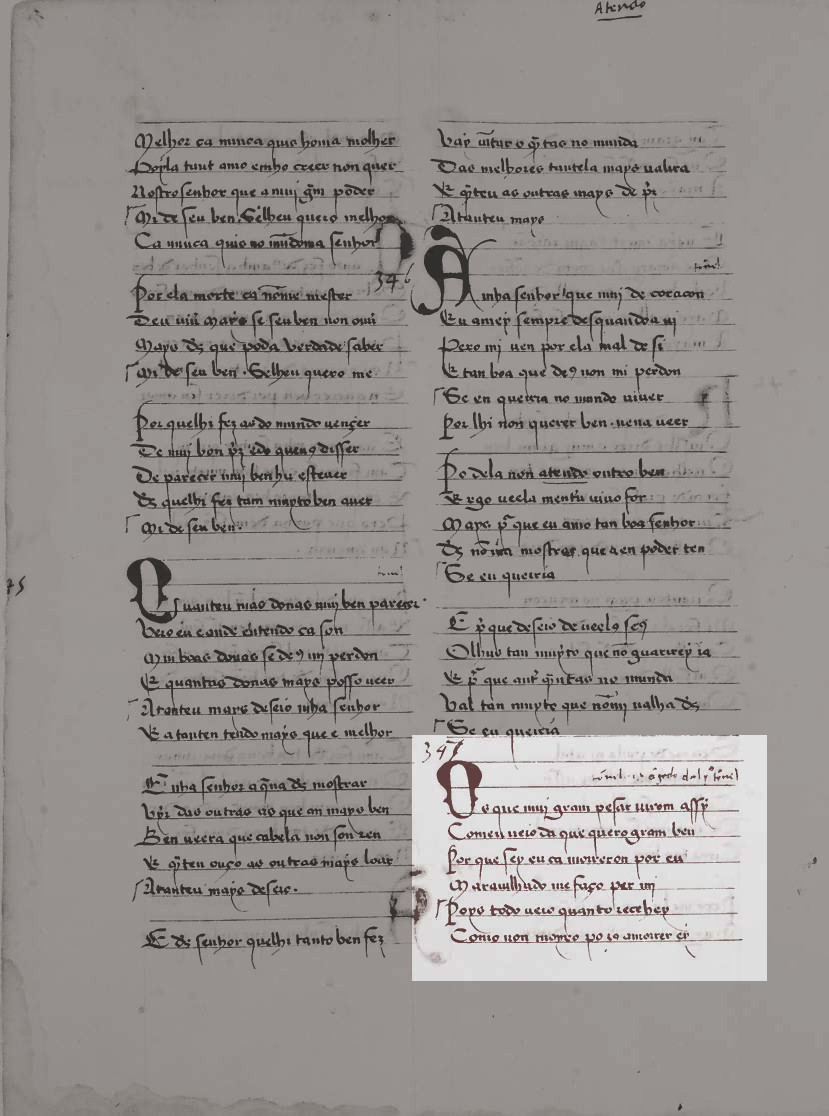 Atendo
Melhor ca nunca quis homa molher
Por ela tant amo e mho creer non quer
Nostro senhor que a muj gm poder
Mi de seu ben. Selheu quero melhor
Ca nunca quis no mũdoma senhor
Por ela morte ca nome mester
Deu
Mays ds que poda verdade saber
Mi de seu ben. Selheu quero me
Por quelhi fez ao do mundo uençer
De muj bon
De pareçer muj ben hu esteuer
ds quelhi fez tam muyto ben auer
Mi de seu ben.
Quanteu mais donas muj ben pareçer
Veio eu e onde entendo ca son
Mui boas donas se de9 mj perdon
E quantas donas mays posso ueer
Atanteu mays deseio mha senhor
E atanten tendo mays que e melhor
75
E mha senhor aqna ds mostrar
das outras as que an mays ben
Ben ueera que cabela non son ren
E qnten ouço as outras mays loar
Atanteu mays deseio.
E ds senhor quelhi tanto ben fez
no mundo
Das melhores tantela mays ualira
E qnteu as outras mays de
Atanteu mays
346
tornel
A mha senhor que muj de coraçon
Eu amey sempre desquando a uj
Pero mj uen por ela mal de si
E tan boa que de9 non mi perdon
Se eu queiria no mundo uiuer
Por lhi non querer ben. nena ueer
Po dela non atendo outro ben
Ergo ueela mentr uiuo for
Mays pr que eu amo tan boa senhor
ds
Se eu queiria
E pr que deseio de ueelos se9
Olhus tan muyto que nõ guarirey ia
E pr que antr qntas no munda
Val tan muyto que nõmj ualha ds
Se eu queiria
347
tornel
Os que muj gram pesar uirom assy
Comeu ueio da que quero gram ben
Por que sey eu ca morreron por en
Marauilhado me faço per mj
Poys todo ueio quanto reçehey
Como non moyro